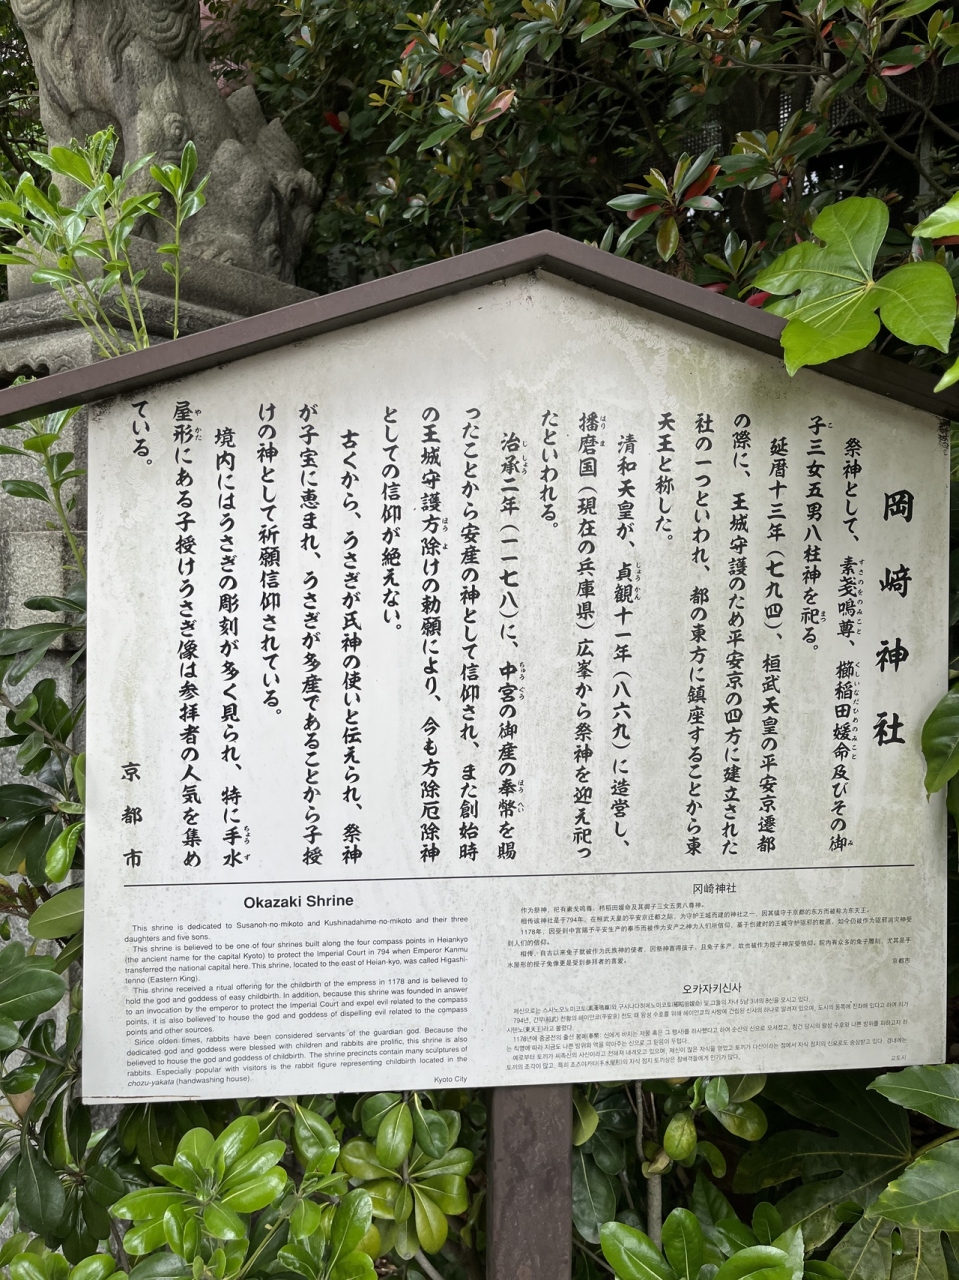 岡﨑神社
祭神として、素戔嗚尊、櫛稲田媛命及びその御
子三女五男八柱神を祀る。
延暦十三年(七九四)、桓武天皇の平安京遷都
の際に、王城守護のため平安京の四方に建立された
社の一つといわれ、都の東方に鎮座することから東
天王と称した。
清和天皇が、貞観十一年(八六九)に造営し、
播磨国(現在の兵庫県)広峯から祭神を迎え祀っ
たといわれる。
治承二年(一一七八)に、中宮の御産の奉幣を賜
ったことから安産の神として信仰され、また創始時
の王城守護方除けの勅願により、今も方除厄除神
としての信仰が絶えない。
古くから、うさぎが氏神の使いと伝えられ、祭神
が子宝に恵まれ、うさぎが多産であることから子授
けの神として祈願信仰されている。
境内にはうさぎの彫刻が多く見られ、特に手水
屋形にある子授けうさぎ像は参拝者の人気を集め
ている。
京都市
Okazaki Shrine
This shrine is dedicated to Susanoh-no-mikoto and Kushinadahime-no-mikoto and their three
daughters and five sons.
This shrine is believed to be one of four shrines built along the four compass points in Heiankyo
(the ancient name for the capital Kyoto) to protect the Imperial Court in 794 when Emperor Kanmu
transferred the national capital here. This shrine, located to the east of Heian-kyo, was called Higashi-
tenno (Eastern King).
This shrine received a ritual offering for the childbirth of the empress in 1178 and is believed to
hold the god and goddess of easy childbirth. In addition, because this shrine was founded in answer
to an invocation by the emperor to protect the Imperial Court and expel evil related to the compass
points, it is also believed to house the god and goddess of dispelling evil related to the compass
points and other sources.
Since olden times, rabbits have been considered servants of the guardian god. Because the
dedicated god and goddess were blessed with children and rabbits are prolific, this shrine is also
believed to house the god and goddess of childbirth. The shrine precincts contain many sculptures of
rabbits. Especially popular with visitors is the rabbit figure representing childbirth located in the
chozu-yakata (handwashing house).
Kyoto City
冈崎神社
作为祭神，祀有素戈呜尊、栉稻田媛命及其御子三女五男八尊神。
相传该神社是于794年，在桓武天皇的平安京迁都之际，为守护王城而建的神社之一，因其镇守于京都的东方而被称为东天王。
京都市
오카자키신사
교토시